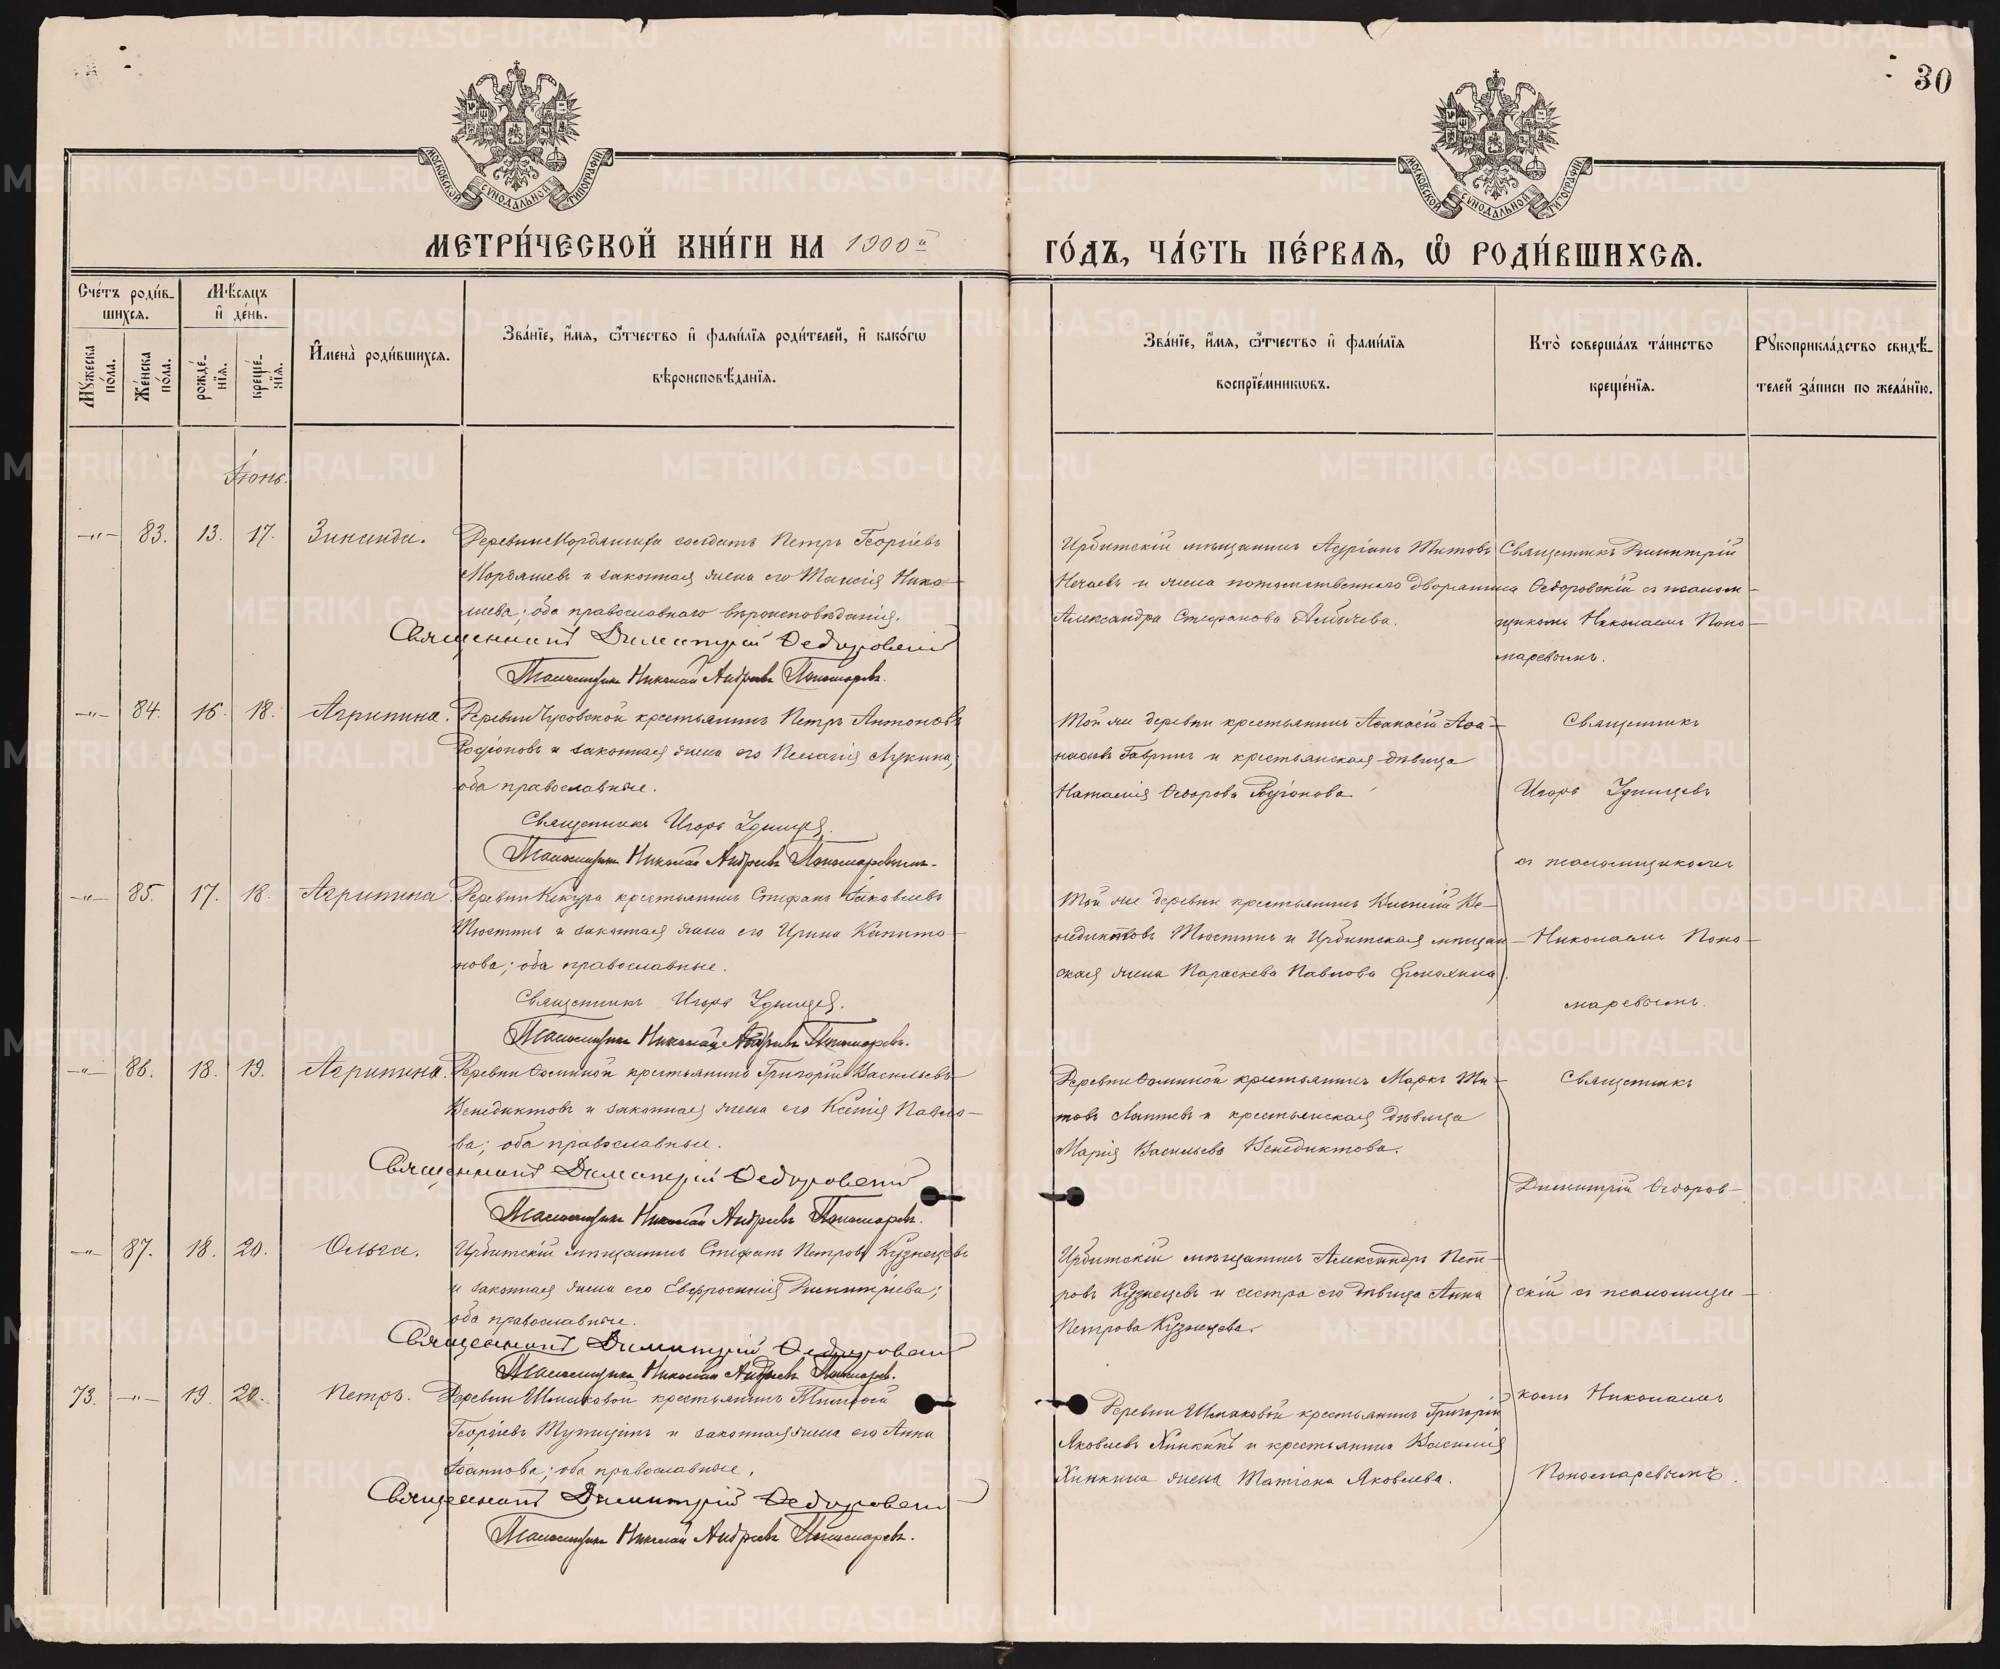 30
МОСКОВСКОЙ СѴНОДАЛЬНОЙ ТИПОГРАФІИ
МОСКОВСКОЙ СѴНОДАЛЬНОЙ ТИПОГРАФІИ
МЕТРИ́ЧЕСКОЙ КНИ́ГИ НА 1900й
ГО́ДЪ, ЧА́СТЬ ПЕ́РВАѦ, Ѡ҆ РОДИ́ВШИХСѦ.
Сче́тъ роди́в-
шихсѧ.
Мѣ́сѧцъ
и҆ де́нь.
Мꙋ́жеска по́ла.
Же́нска по́ла.
рожде́-нїѧ.
креще́-нїѧ.
И҆мена̀ роди́вшихсѧ.
Зва́нїе, и҆́мѧ, ѻ҆́тчество и҆ фами́лїѧ роди́телей, и҆ како́гѡ
вѣроисповѣ́данїѧ.
Зва́нїе, и҆́мѧ, ѻ҆́тчество и҆ фами́лїѧ
воспрїе́мникѡвъ.
Кто̀ соверша́лъ та́инство
креще́нїѧ.
Рꙋкоприкла́дство свидѣ́-
телей за́писи по жела́нїю.
Іюнь.
—„— 83. 13. 17. Зинаида.
Деревни Мордяшиха солдатъ Петръ Георгіевъ
Мордяшевъ и законная жена его Таисія Нико-
лаева; оба православнаго вѣроисповѣданія.
Священникъ Димитрій Ѳедоровскій
Псаломщикъ Николай Андреевъ Пономаревъ.
Ирбитскій мѣщанинъ Адріанъ Титовъ
Нечаевъ и жена потомственнаго дворянина
Александра Стефанова
Священникъ Димитрій
Ѳедоровскій съ псалом-
щикомъ Николаемъ Поно-
маревымъ.
—„— 84. 16. 18. Агрипина.
Деревни Чусовской крестьянинъ Петръ Антоновъ
Родіоновъ и законная жена его Пелагія Лукина;
оба православные.
Священникъ Игорь Удинцев.
Псаломщикъ Николай Андреевъ Пономаревымъ.
Той же деревни крестьянинъ Аѳанасій Аѳа-
насьевъ Гавринъ и крестьянская дѣвица
Наталія Ѳедорова Родіонова.
Священникъ
Игорь Удинцевъ
съ псаломщикомъ
Николаемъ Поно-
маревымъ.
—„— 85. 17. 18. Агрипина.
Деревни Кекура крестьянинъ Стефанъ Іаковлевъ
Тюстинъ и законная жена его Ирина Капито-
нова; оба православные.
Священникъ Игорь Удинцев.
Псаломщикъ Николай Андреевъ Пономаревъ.
Той же деревни крестьянинъ Василій Ве-
недиктовъ Тюстинъ и Ирбитская мѣщан-
ская жена Параскева Павлова
—„— 86. 18. 19. Агрипина.
Деревни Ѳоминой крестьянинъ Григорій Васильевъ
Венедиктовъ и законная жена его Ксенія Павло-
ва; оба православные.
Священникъ Димитрій Ѳедоровскій
Псаломщикъ Николай Андреевъ Пономаревъ.
Деревни Ѳоминой крестьянинъ Маркъ Ти-
товъ Лаптевъ и крестьянская дѣвица
Марія Васильева Венедиктова.
Священникъ
Димитрій Ѳедоров-
скій съ псаломщи-
комъ Николаемъ
Пономаревымъ.
—„— 87. 18. 20. Ольга.
Ирбитскій мѣщанинъ Стефанъ Петровъ Кузнецовъ
и законная жена его Евфросинія Димитріева;
оба православные.
Священникъ Димитрій Ѳедоровскій
Псаломщикъ Николай Андреевъ Пономаревъ.
Ирбитскій мѣщанинъ Александръ Пет-
ровъ Кузнецовъ и сестра его дѣвица Анна
Петрова Кузнецова.
73. —„— 19. 20. Петръ.
Деревни Шмаковой крестьянинъ Тимоѳей
Георгіевъ и законная жена его Анна
Іоаннова; оба православные.
Священникъ Димитрій Ѳедоровскій
Псаломщикъ Николай Андреевъ Пономаревъ.
Деревни Шмаковой крестьянинъ Григорій
Яковлевъ Хинкинъ и крестьянина Василія
Хинкина жена Татіана Яковлева.
METRIKI.GASO-URAL.RU